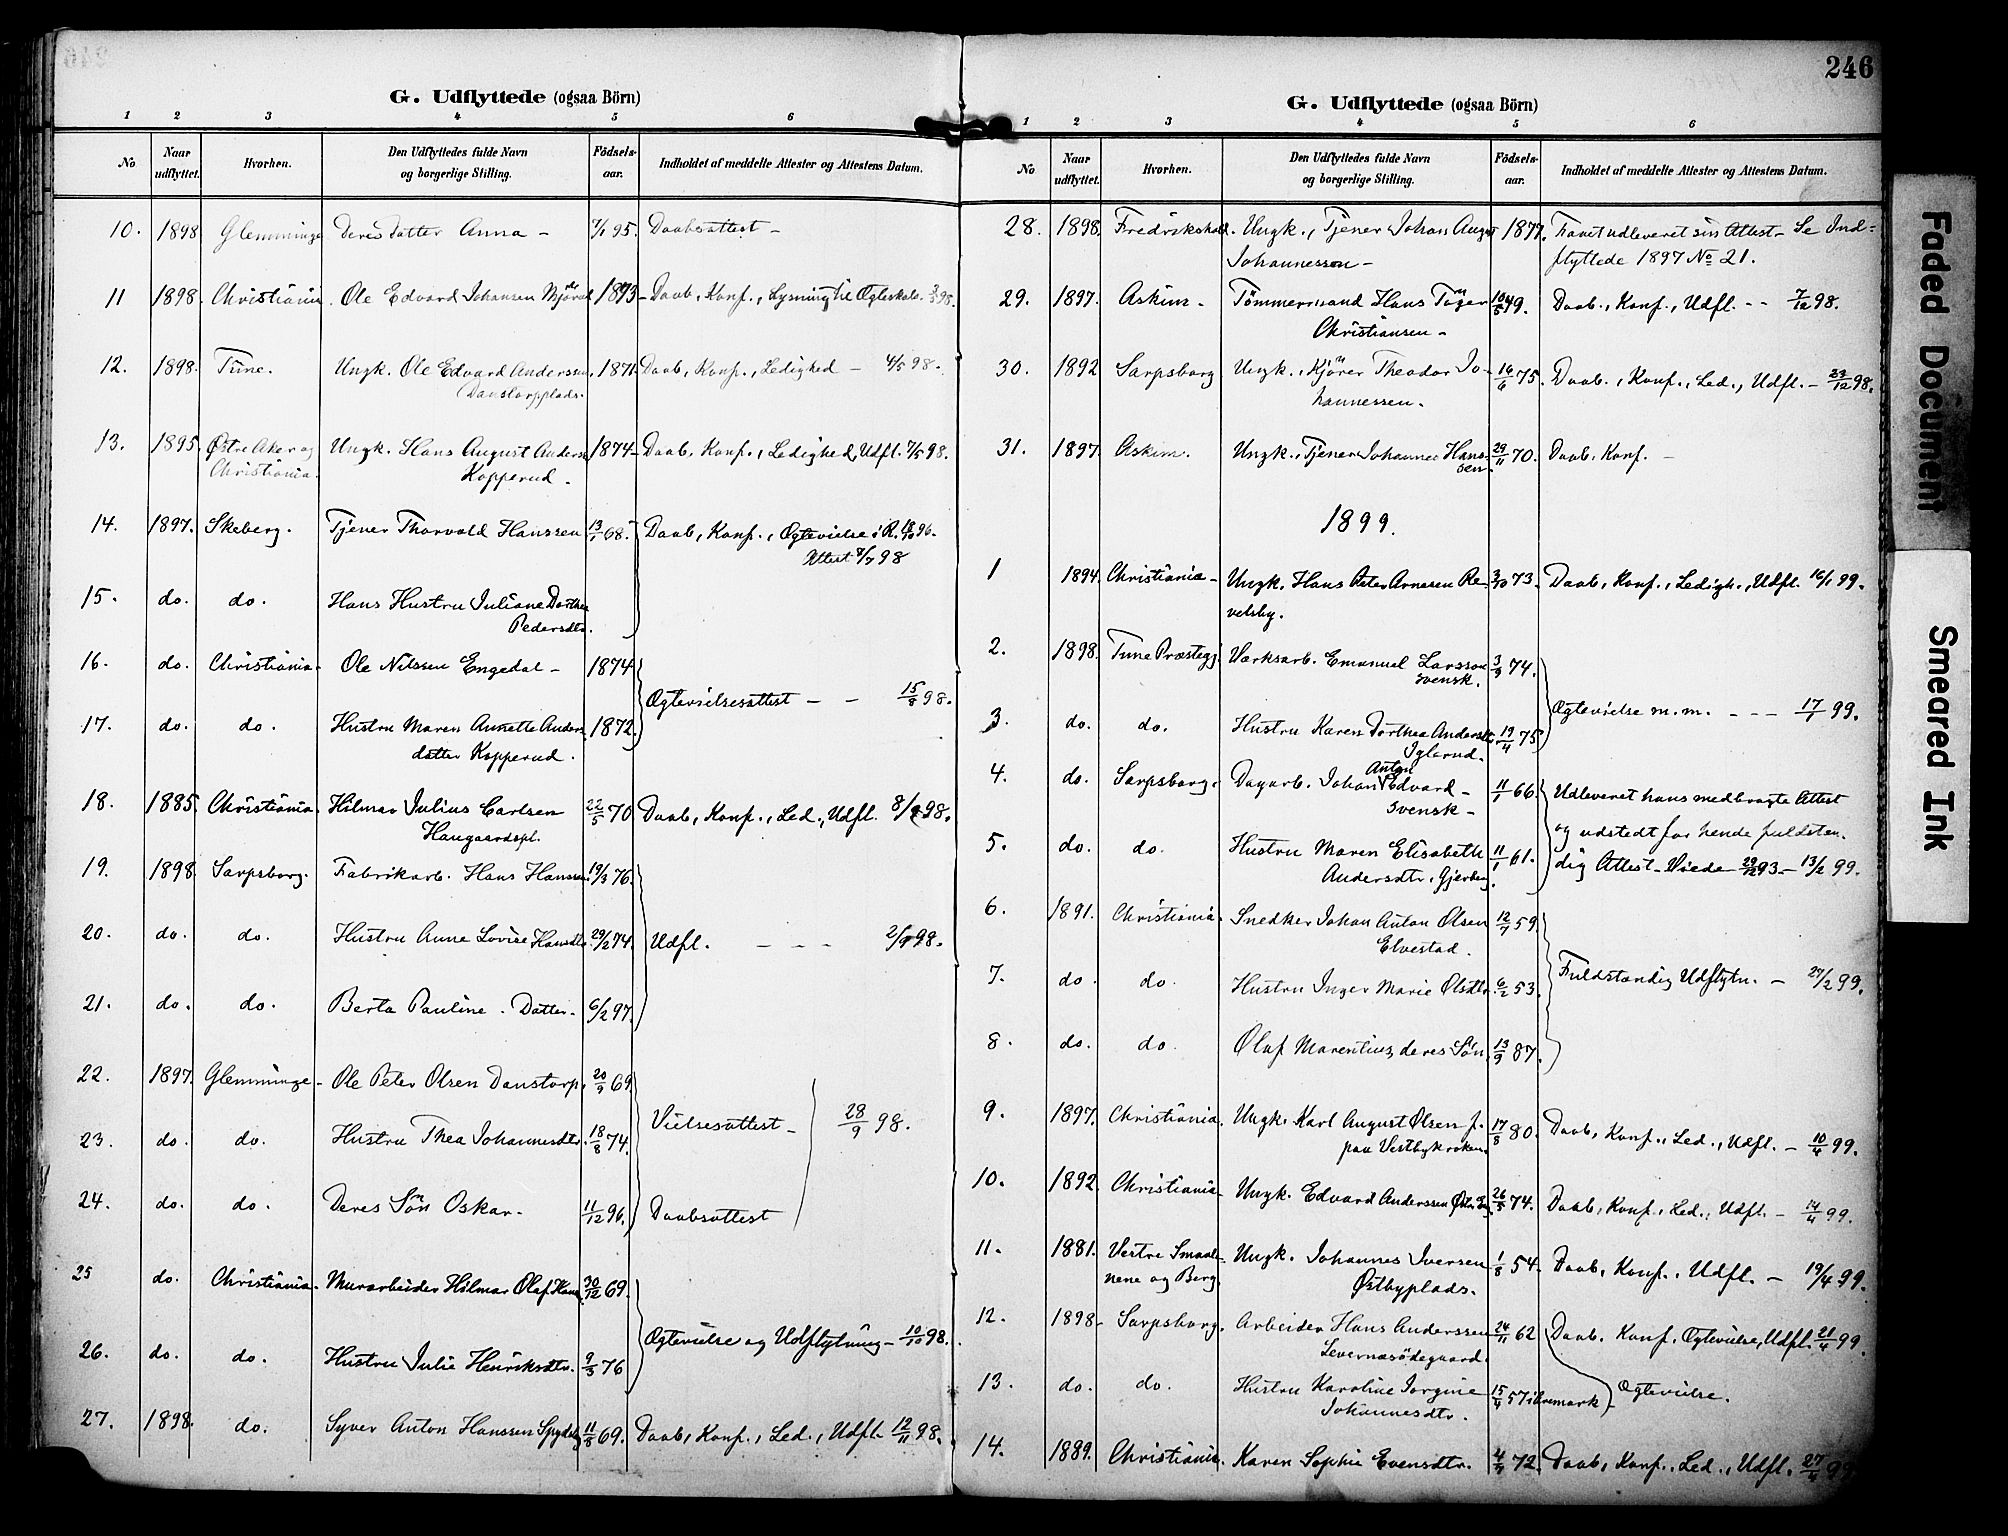 G. Udflyttede (ogsaa Börn)
1 2 3 4 5 6
No Naar udflyttet. Hvorhen. Den Udflyttedes fulde Navn og borgerlige Stilling. Födsels-aar. Indholdet af meddelte Attester og Attestens Datum.
10. 1898 Glemminge Deres datter Anna - 7/1 95. Daabsattest -
11 1898. Christiania. Ole Edvard Johansen 1873 - Daab, Konf., Lysning til Ægteskab. 98.
12. 1898. Tune. Ungk. Ole Edvard Anderssen, 1871. Daab, Konf., Ledighed - 4/5 98.
Danstorpplads.
13. 1895. Østre Aker og Ungk. Hans August Anders. 1874 - Daab, Konf., Ledighed, Udfl. 7/5 98.
Christiania. Kopperud.
14. 1897. Skeberg. Tjener Thorvald Hanssen 13/1 68. Daab, Konf., Ægtevielse i R. 96.
Attest 98
15. do. do. Hans Hustru Juliane Dorthea
Pedersdtr.
16. do. Christiania. Ole Nilssen Engedal - 1874
Ægtevielsesattest - - 15/8 98.
17. do. do. Hustru Maren Annette Anders. 1872.
datter Kopperud.
18. 1885. Christiania. Hilmar Julius Carlsen 22/5 70 Daab, Konf., Led., Udfl. 8/9 98.
Haugaardspl.
19. 1898. Sarpsborg. Fabrikarb. Hans Hanssen. 19/3 76.
20. do. do. Hustru Anne Lovise Hansdtr. 29/2 74. Udfl. - - - 2/9 98.
21. do. do. Berta Pauline. Datter. 6/2 97.
22. 1897. Glemminge - Ole Peter Olsen Danstorp, 20/9 69
Vielsesattest - 28/9 98.
23. do. do. Hustru Thea Johannesdtr. 18/8 74.
24. do. do. Deres Sön Oskar. 11/12 96. Daabsattest
25 do. Christiania. Murarbeider Hilmar Olaf Hans. 30/12 69.
Ægtevielse og Udflytning - 10/10 98.
26. do. do. Hustru Julie Henriksdtr. 9/3 76
27. 1898. do. Syver Anton Hanssen 11/8 69. Daab, Konf., Led., Udfl. 12/11 98.
246
G. Udflyttede (ogsaa Börn)
1 2 3 4 5 6
No Naar udflyttet. Hvorhen. Den Udflyttedes fulde Navn og borgerlige Stilling. Födsels-aar. Indholdet af meddelte Attester og Attestens Datum.
28. 1898. Fredrikshald. Ungk., Tjener Johan August 1877. Faaet udleveret sin Attest - Se Ind=
Johannessen - flyttede 1897 No 21.
29. 1897. Askim - Tömmermand Hans 49. Daab., Konf., Udfl. - - 7/12 98.
Christiansen -
30. 1892 Sarpsborg Ungk., Kjörer Theodor Jo- 16/6 75. Daab., Konf., Led., Udfl. - 23/12 98.
hannessen.
31. 1897. Askim. Ungk., Tjener Johannes Hans- 29/11 70. Daab. Konf. -
sen
1899.
1 1894. Christiania - Ungk. Hans Peter Arnesen Re- 3/10 73. Daab, Konf., Ledigh., Udfl. 16/1 99.
velsby.
2. 1898. Tune Præstegj. Værksarb. Emanuel Larsson 3/9 74.
svensk.
Ægtevielse m.m. - - - 17/1 99.
3. do. do. Hustru Karen Dorthea Andersdtr. 19/4 75
Iglerud.
4. do. Sarpsborg. Dagarb. Johan Anton Edvard - 11/1 66. Udleveret hans medbragte Attest
svensk - og udstedt for hende fuldstæn-
5. do. do. Hustru Maren Elisabeth 11/1 61. dig Attest - Viede 29/12 93 - 13/2 99.
Andersdtr.
6. 1891. Christiania. Snedker Johan Anton Olsen 59.
Elvestad.
7. do. do. Hustru Inger Marie Olsdtr. 6/2 53. Fuldstændig Udflytn. - 27/2 99.
8. do. do. Olaf Marentius, deres Sön. 13/9 87.
9. 1897. Christiania. Ungk. Karl August Olsen f. 17/8 80. Daab, Konf., Led., Udfl. - 10/4 99.
paa Vestbykroken.
10. 1892. Christiania. Ungk. Edvard Anderssen 26/5 74. Daab, Konf., Led., Udfl. - 14/4 99.
11. 1881. Vestre Smaale- Ungk. Johannes Iversen 1/8 54. Daab, Konf., Udfl. - 19/4 99.
nene og Berg. Østbyplads.
12. 1898. Sarpsborg. Arbeider Hans Anderssen 24/11 62 Daab. Konf. Ægtevielse, Udfl. 21/4 99.
Levernæsödegaard.
13. do. do. Hustru Karoline Jorgine 15/4 57 i Aremark Ægtevielse.
Johannesdtr.
14. 1889. Christiania. Karen Sophie Evensdtr. 72. Daab, Konf., Led., Udfl. 27/4 99.
Faded Document
Smeared Ink